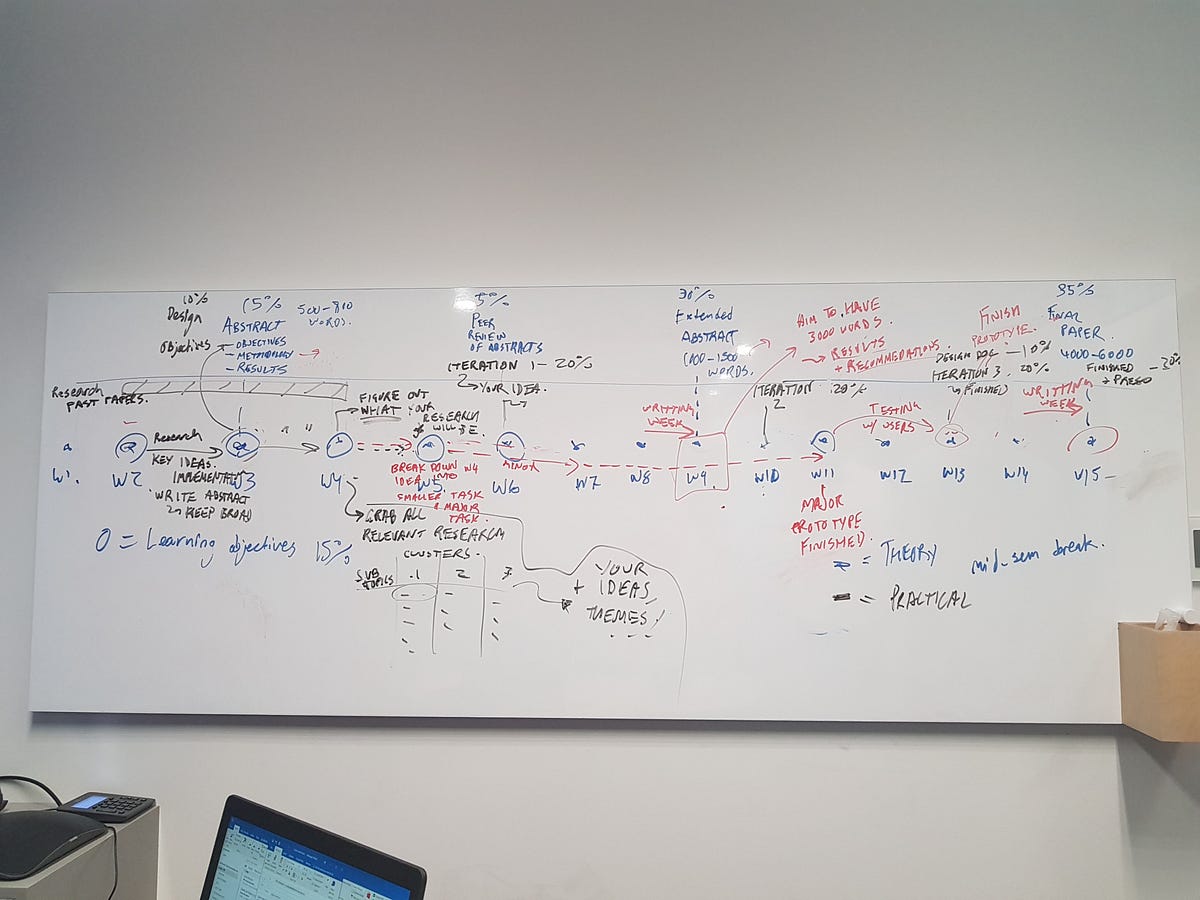 10%
Design
Objectives
15%
500-800
WORDS.
ABSTRACT
- OBJECTIVES
- METHODOLOGY
- RESULTS
5%
PEER
REVIEW
OF ABSTRACTS
ITERATION 1 - 20%
YOUR IDEA.
30%
Extended
ABSTRACT
1100-1500
WORDS.
AIM TO HAVE
3000 WORDS.
RESULTS
+ RECOMMENDATIONS.
FINISH
PROTOTYPE.
DESIGN DOC - 10%
ITERATION 3. 20%
FINISHED)
35%
FINAL
PAPER.
4000-6000
FINISHED
+ PREZO - 30%
Research
PAST PAPERS.
FIGURE OUT
WHAT YOUR
RESEARCH
WILL BE.
WRITTING
WEEK
ITERATION 20%
2
TESTING
W/ USERS
WRITTING
WEEK
Research
KEY IDEAS.
WRITE ABSTRACT
KEEP BROAD
W1. W2 W3 W4 W5 W6 W7 W8 W9. W10 W11 W12 W13 W14 W15
BREAK DOWN W4
IDEA INTO
SMALLER TASK
& MAJOR
TASK.
MINOR
GRAB ALL
RELEVANT RESEARCH
CLUSTERS.
SUB
TOPICS
1 2 3
YOUR
+ IDEAS
THEMES!
MAJOR
PROTOTYPE
FINISHED.
O = Learning objectives 15%
= THEORY
mid-sem break.
= PRACTICAL